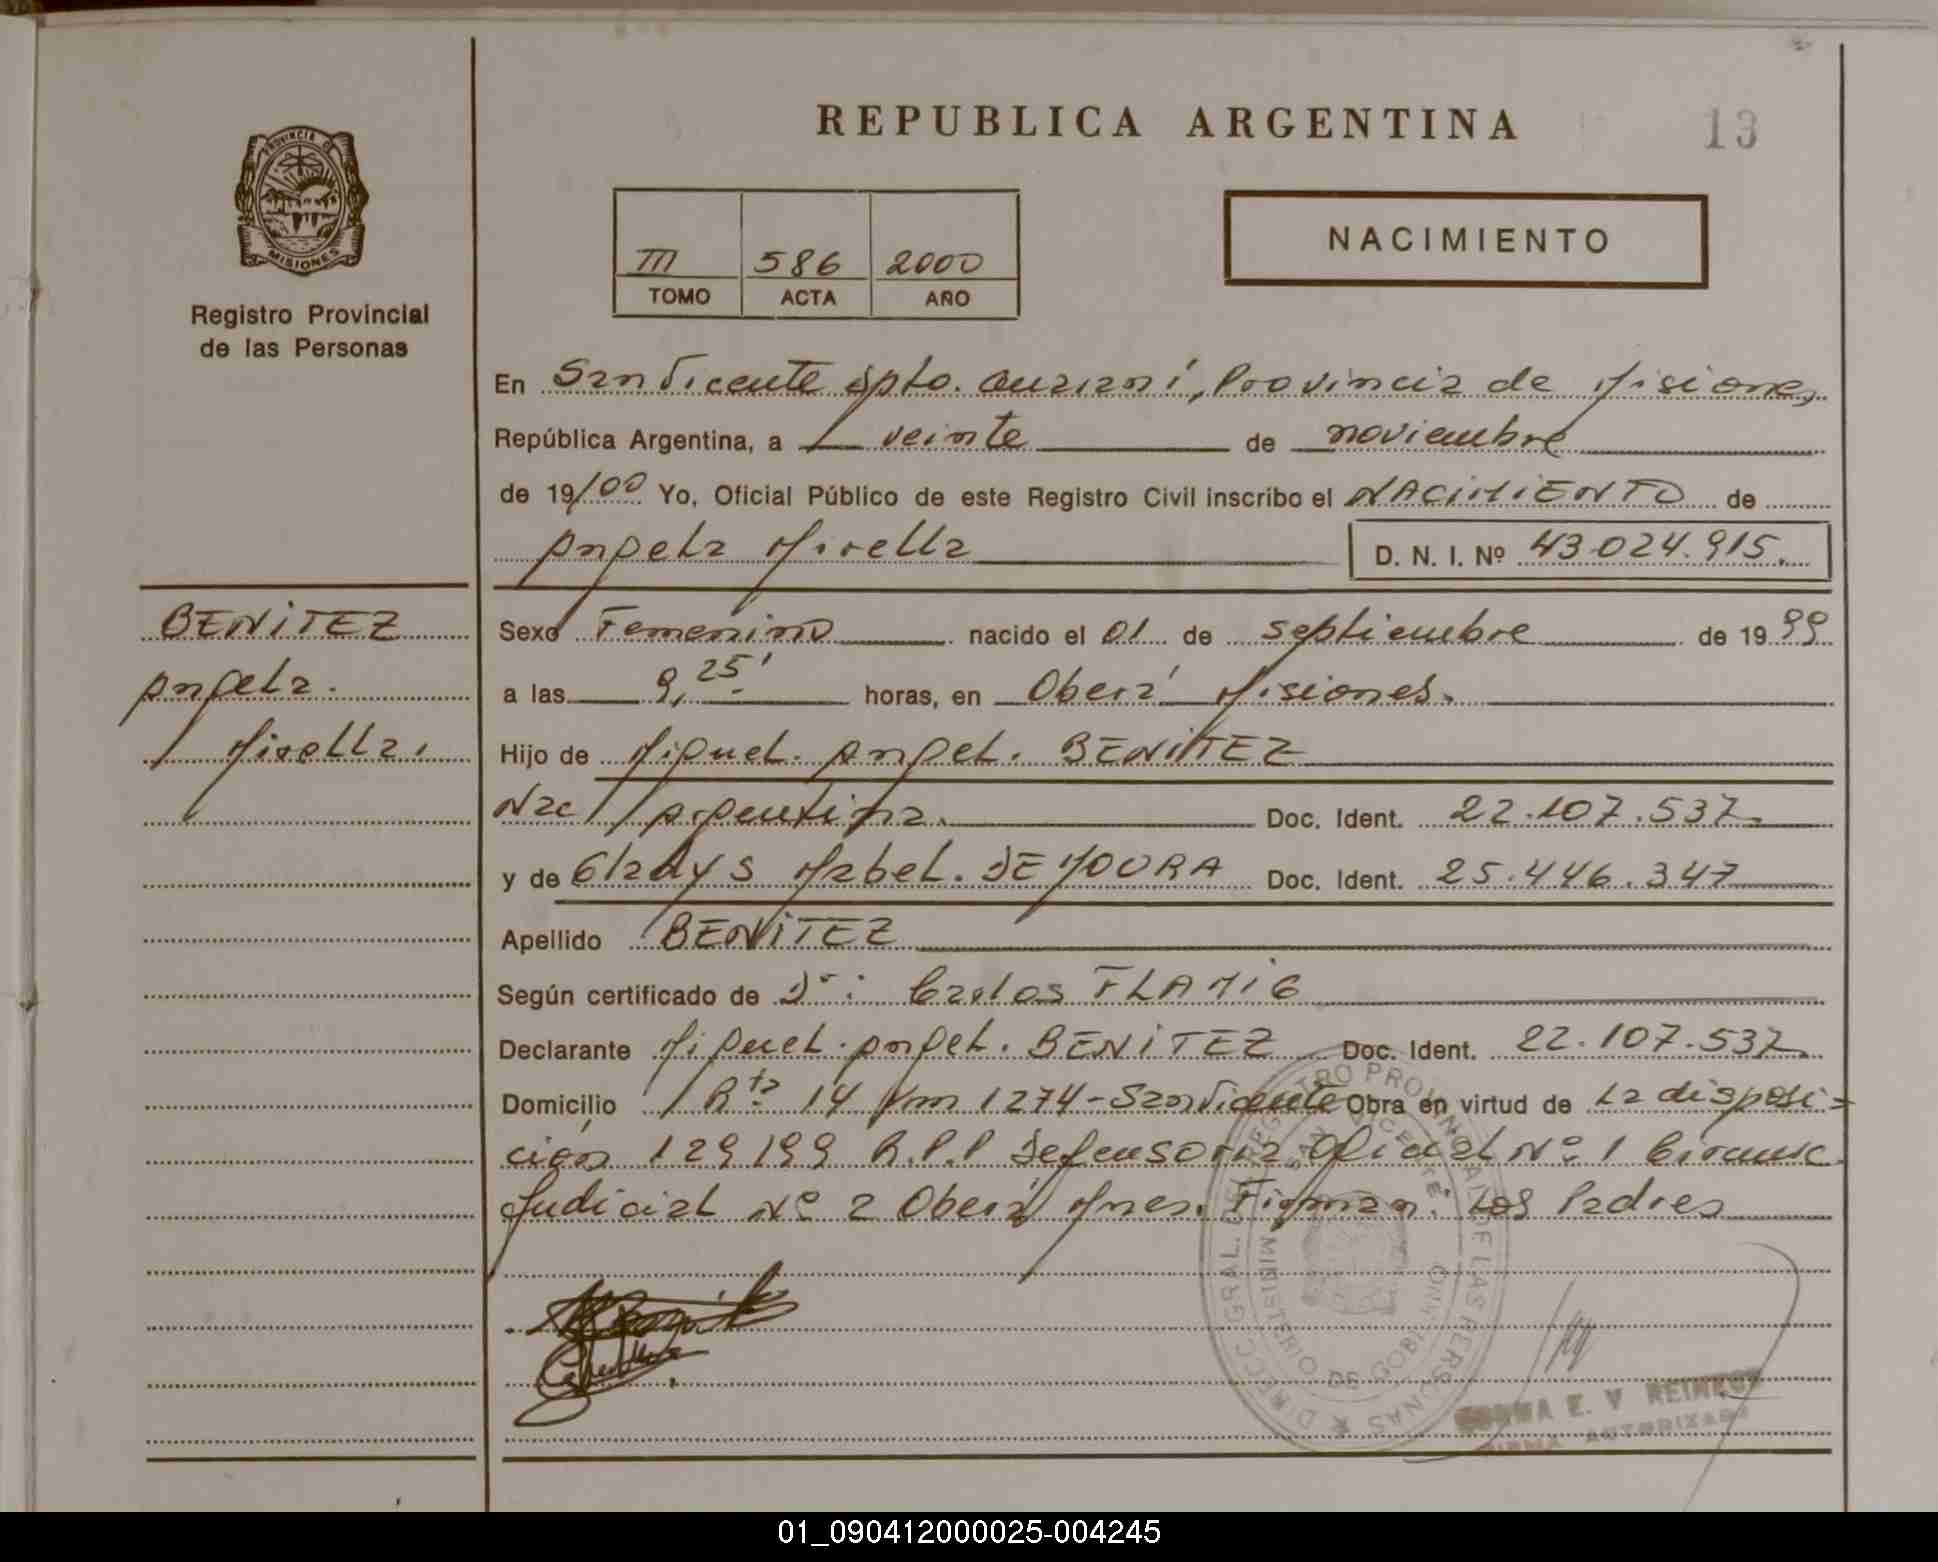 REPUBLICA ARGENTINA
13
PROVINCIA DE
MISIONES
Registro Provincial
de las Personas
III 586 2000
TOMO ACTA AÑO
NACIMIENTO
En San Vicente Dpto. Guaraní, Provincia de Misiones,
República Argentina, a veinte de noviembre
de 19/00 Yo, Oficial Público de este Registro Civil inscribo el NACIMIENTO de
Angela Mirella D. N. I. Nº 43.024.915.
BENITEZ
Angela.
Mirella.
Sexo Femenino nacido el 01 de septiembre de 1999
a las 9,25' horas, en Oberá Misiones.
Hijo de Miguel. Angel. BENITEZ
Nac Argentina. Doc. Ident. 22.107.537
y de Gladys Mabel. DE MOURA Doc. Ident. 25.446.347
Apellido BENITEZ
Según certificado de Dr: Carlos FLAMIG
Declarante Miguel. Angel. BENITEZ Doc. Ident. 22.107.537
Domicilio Rta 14 Km 1274-San Vicente Obra en virtud de La disposi=
ción 129/99 R.P.P Defensoria Oficial Nº 1 Circunsc
Judicial Nº 2 Oberá Mnes. Firman: Los Padres
DIRECC. GRAL. DEL REGISTRO PROVINCIAL DE LAS PERSONAS
SAN VICENTE
MINISTERIO DE GOBIERNO
NORMA E. V REINECK
FIRMA AUTORIZADA
01_090412000025-004245